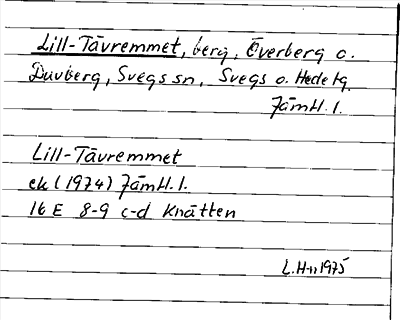 Lill-Tåvremmet, berg, Överberg o.
Duvberg, Svegs sn, Svegs o. Hede tg
Jämtl. l.
Lill-Tåvremmet
ek (1974) Jämtl. l.
16 E 8-9 c-d Knätten
L.H-n 1975